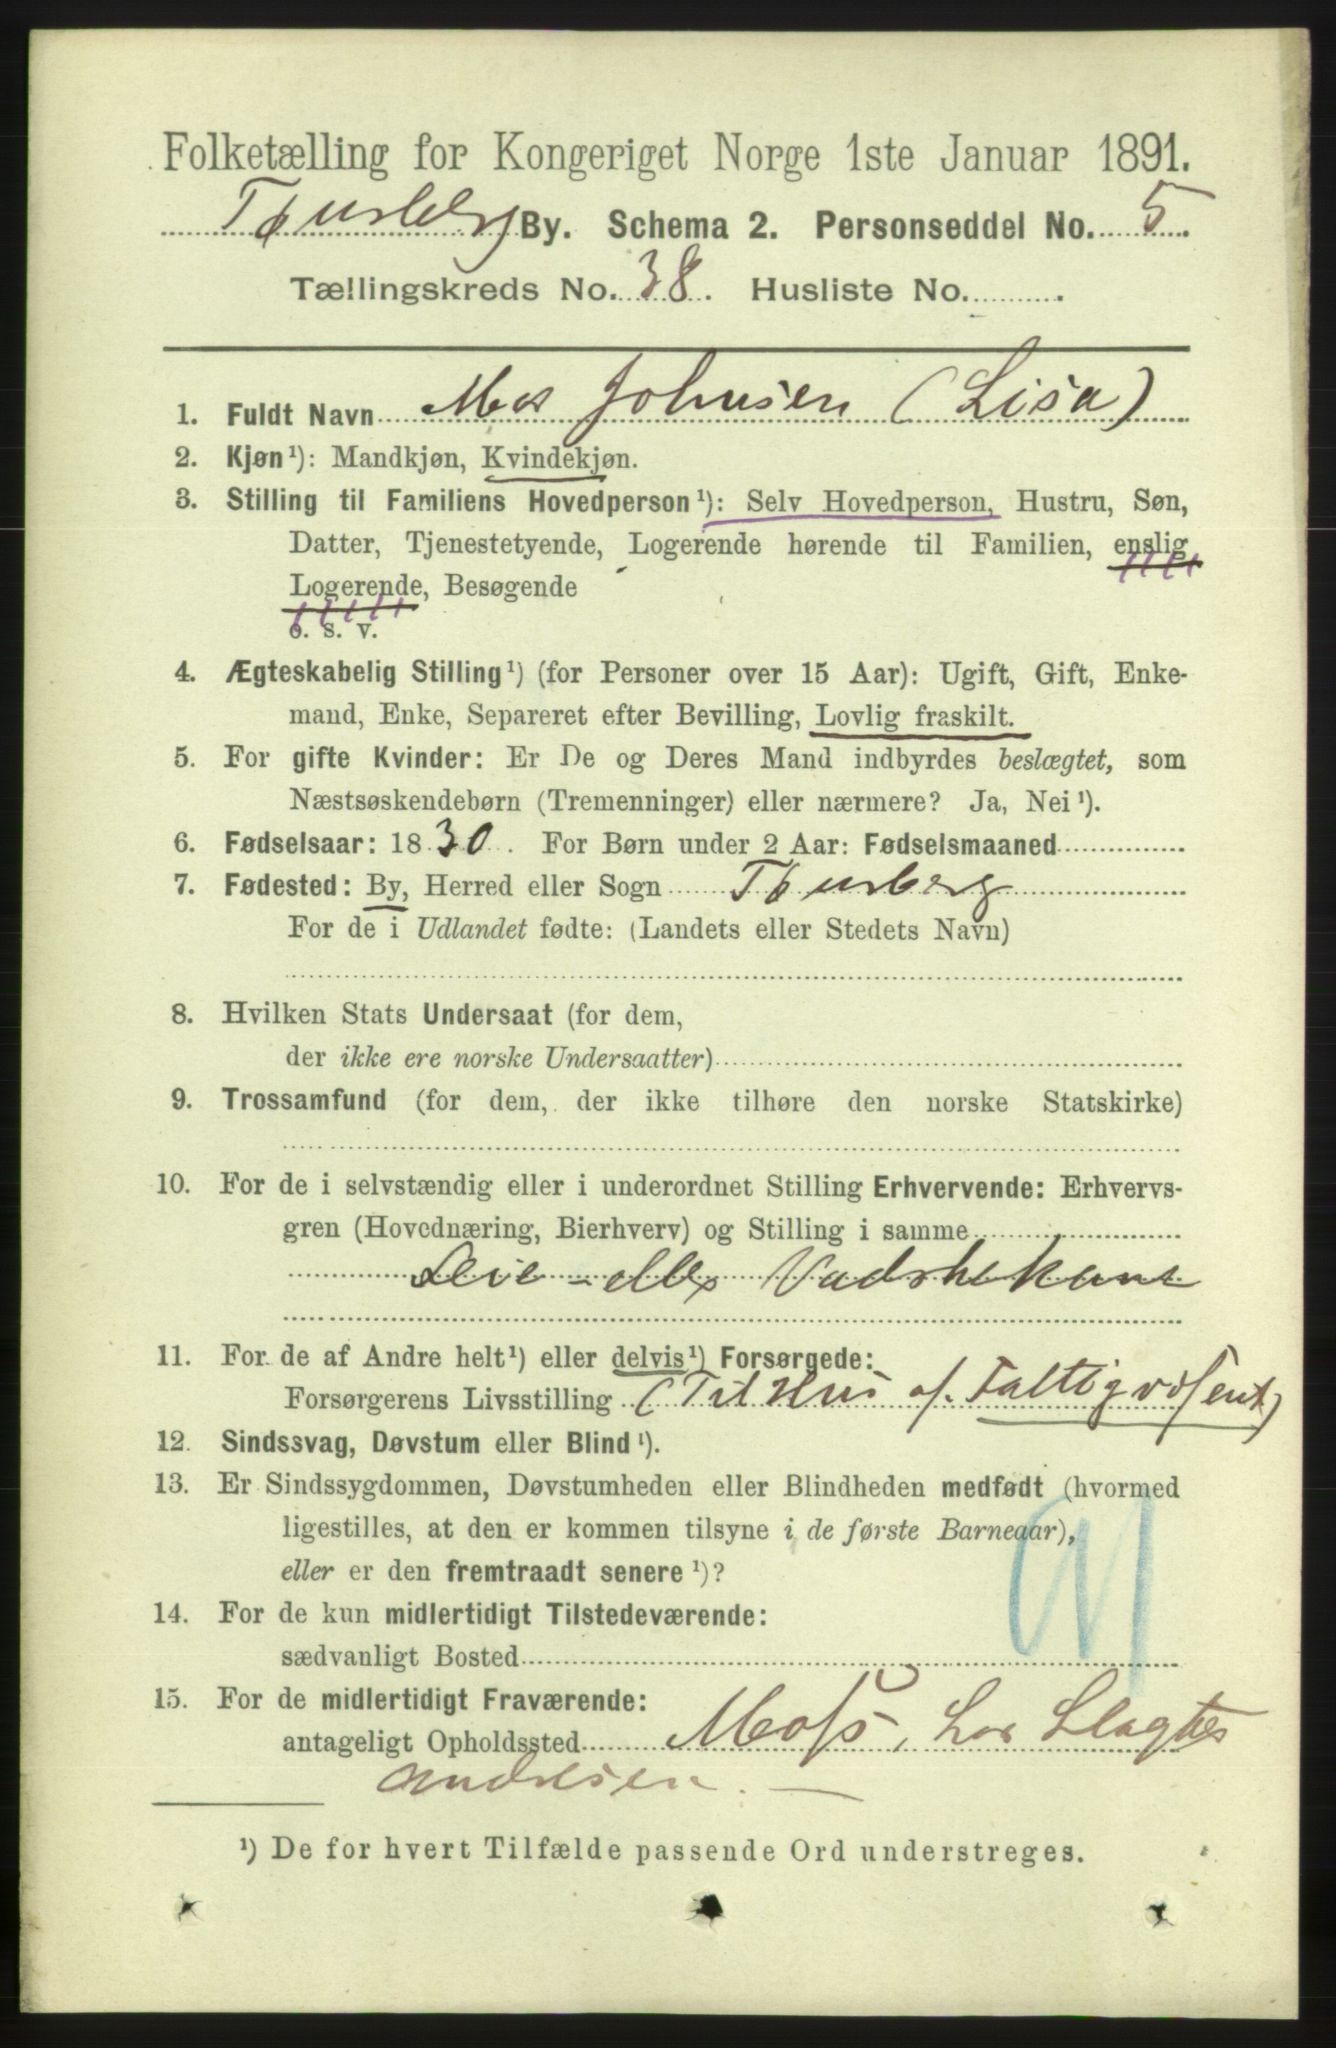 Folketælling for Kongeriget Norge 1ste Januar 1891.
Tønsberg By. Schema 2. Personseddel No. 5.
Tællingskreds No. 38. Husliste No.
1. Fuldt Navn Johnsen (Lisa)
2. Kjøn¹): Mandkjøn, Kvindekjøn.
3. Stilling til Familiens Hovedperson¹): Selv Hovedperson, Hustru, Søn,
Datter, Tjenestetyende, Logerende hørende til Familien, enslig
Logerende, Besøgende
o. s. v.
4. Ægteskabelig Stilling¹) (for Personer over 15 Aar): Ugift, Gift, Enke-
mand, Enke, Separeret efter Bevilling, Lovlig fraskilt.
5. For gifte Kvinder: Er De og Deres Mand indbyrdes beslægtet, som
Næstsøskendebørn (Tremenninger) eller nærmere? Ja, Nei¹).
6. Fødselsaar: 1830. For Børn under 2 Aar: Fødselsmaaned
7. Fødested: By, Herred eller Sogn Tønsberg
For de i Udlandet fødte: (Landets eller Stedets Navn)
8. Hvilken Stats Undersaat (for dem,
der ikke ere norske Undersaatter)
9. Trossamfund (for dem, der ikke tilhøre den norske Statskirke)
10. For de i selvstændig eller i underordnet Stilling Erhvervende: Erhvervs-
gren (Hovednæring, Bierhverv) og Stilling i samme
Leie- Vadskekone
11. For de af Andre helt¹) eller delvis¹) Forsørgede:
Forsørgerens Livsstilling (Til Hus af Fattigvæsent)
12. Sindssvag, Døvstum eller Blind¹).
13. Er Sindssygdommen, Døvstumheden eller Blindheden medfødt (hvormed
ligestilles, at den er kommen tilsyne i de første Barneaar),
eller er den fremtraadt senere¹)?
14. For de kun midlertidigt Tilstedeværende:
sædvanligt Bosted
15. For de midlertidigt Fraværende:
antageligt Opholdssted Moss, hos Slagter
Andresen. —
¹) De for hvert Tilfælde passende Ord understreges.